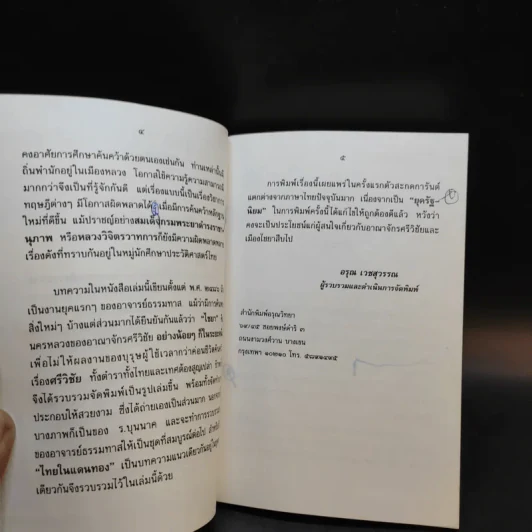 ๔
คงอาศัยการศึกษาค้นคว้าด้วยตนเองเช่นกัน ท่านเหล่านั้นมี
ถิ่นพำนักอยู่ในเมืองหลวง โอกาสใช้ความรู้ความสามารถมี
มากกว่าจึงเป็นที่รู้จักกันดี แต่เรื่องแบบนี้เป็นเรื่องวิชาการ
ทฤษฎีต่างๆ มีโอกาสผิดพลาดได้ เมื่อมีการค้นคว้าหลักฐาน
ใหม่ที่ดีขึ้น แม้ปราชญ์อย่างสมเด็จกรมพระยาดำรงราชา-
นุภาพ หรือหลวงวิจิตรวาทการก็ยังมีความผิดพลาดหลาย
เรื่องดังที่ทราบกันอยู่ในหมู่นักศึกษาประวัติศาสตร์ไทย
บทความในหนังสือเล่มนี้เขียนตั้งแต่ พ.ศ.
เป็นงานยุคแรกๆ ของอาจารย์ธรรมทาส แม้ว่ามีการค้น
สิ่งใหม่ๆ บ้างแต่ส่วนมากได้ยืนยันกันแล้วว่า "ไชยา"
นครหลวงของอาณาจักรศรีวิชัย อย่างน้อยๆ ก็ในระยะ
เพื่อไม่ให้ผลงานของบุรุษผู้ใช้เวลากว่าค่อนชีวิต
เรื่องศรีวิชัย ทั้งตำราทั้งไทยและเทศต้องสูญเปล่า
จึงได้รวบรวมจัดพิมพ์เป็นรูปเล่มขึ้น พร้อมทั้งจัด
ประกอบให้สวยงาม ซึ่งได้ถ่ายเองเป็นส่วนมาก
บางภาพก็เป็นของ ร.บุนนาค และจะทำการรวบรวม
ของอาจารย์ธรรมทาสให้เป็นชุดที่สมบูรณ์ต่อไป
"ไทยในแดนทอง" เป็นบทความแนวเดียวกัน
เดียวกันจึงรวบรวมไว้ในเล่มนี้ด้วย
๕
การพิมพ์เรื่องนี้เผยแพร่ในครั้งแรกตัวสะกดการันต์
แตกต่างจากภาษาไทยปัจจุบันมาก เนื่องจากเป็น "ยุครัฐ-
นิยม" ในการพิมพ์ครั้งนี้ได้แก้ไขให้ถูกต้องดีแล้ว หวังว่า
คงจะเป็นประโยชน์แก่ผู้สนใจเกี่ยวกับอาณาจักรศรีวิชัยและ
เมืองไชยาสืบไป
อรุณ เวชสุวรรณ
ผู้รวบรวมและดำเนินการจัดพิมพ์
สำนักพิมพ์อรุณวิทยา
ซอยพงษ์คำรี ๓
ถนนงามวงศ์วาน บางเขน
กรุงเทพฯ ๑๐๒๑๐ โทร.